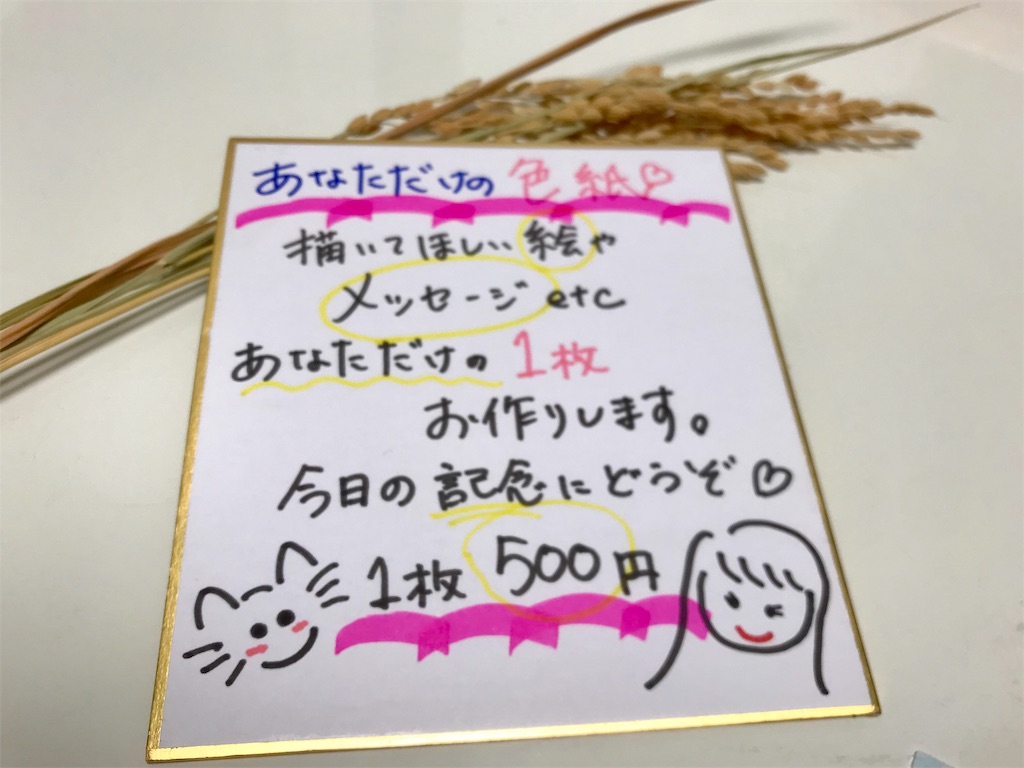 あなただけの色紙♡
描いてほしい絵や
メッセージetc
あなただけの1枚
お作りします。
今日の記念にどうぞ♡
1枚500円